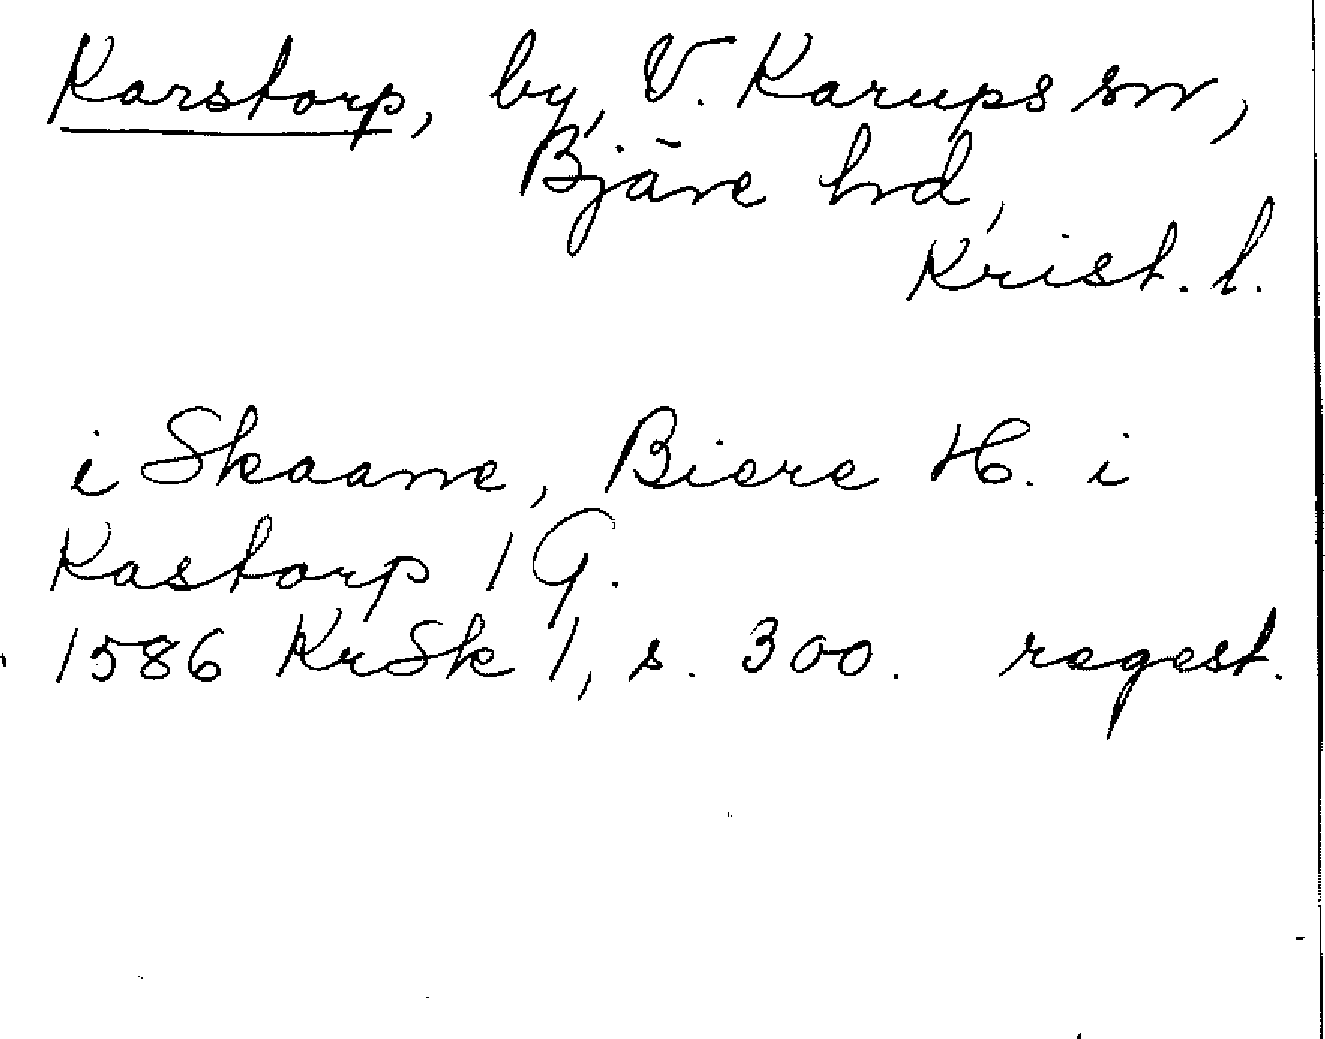 Karstorp, by, V. Karups sn,
Bjäre hd,
Krist. l.
i Skaane, Biere H. i
Kastorp 1 G.
1586 KrSk 1, s. 300. regest.